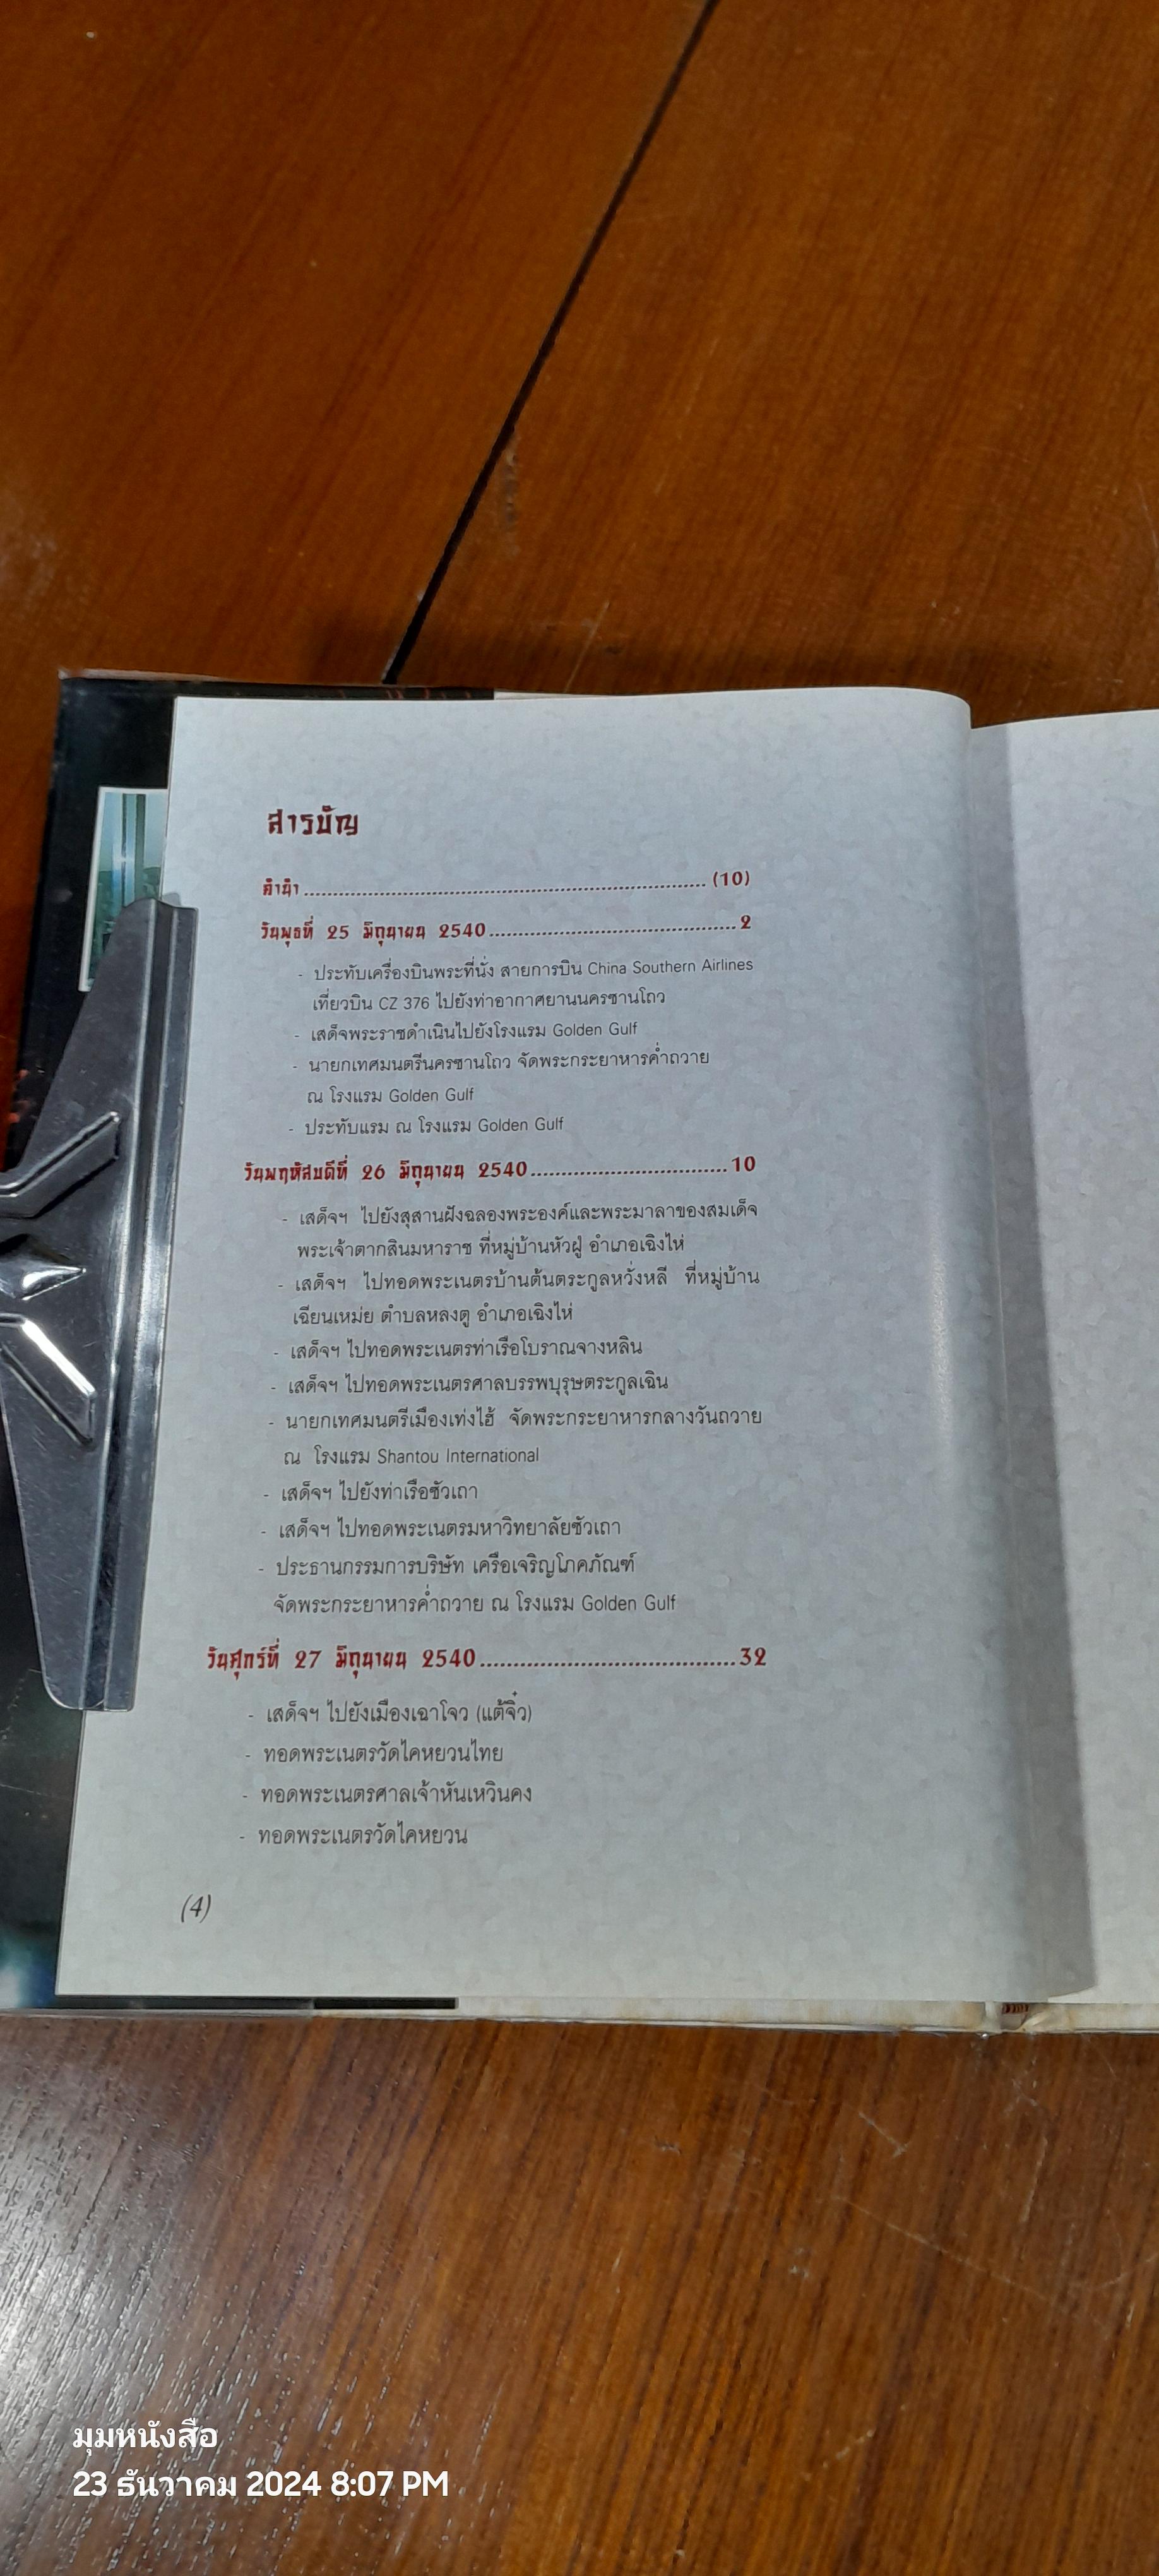 สารบัญ
คำนำ (10)
วันพุธที่ 25 มิถุนายน 2540 2
- ประทับเครื่องบินพระที่นั่ง สายการบิน China Southern Airlines
เที่ยวบิน CZ 376 ไปยังท่าอากาศยานนครซานโถว
- เสด็จพระราชดำเนินไปยังโรงแรม Golden Gulf
- นายกเทศมนตรีนครซานโถว จัดพระกระยาหารค่ำถวาย
ณ โรงแรม Golden Gulf
- ประทับแรม ณ โรงแรม Golden Gulf
วันพฤหัสบดีที่ 26 มิถุนายน 2540 10
- เสด็จฯ ไปยังสุสานฝังฉลองพระองค์และพระมาลาของสมเด็จ
พระเจ้าตากสินมหาราช ที่หมู่บ้านหัวฝู่ อำเภอเฉิงไห่
- เสด็จฯ ไปทอดพระเนตรบ้านต้นตระกูลหวั่งหลี ที่หมู่บ้าน
เฉียนเหม่ย ตำบลหลงตู อำเภอเฉิงไห่
- เสด็จฯ ไปทอดพระเนตรท่าเรือโบราณจางหลิน
- เสด็จฯ ไปทอดพระเนตรศาลบรรพบุรุษตระกูลเฉิน
- นายกเทศมนตรีเมืองเท่งไฮ้ จัดพระกระยาหารกลางวันถวาย
ณ โรงแรม Shantou International
- เสด็จฯ ไปยังท่าเรือซัวเถา
- เสด็จฯ ไปทอดพระเนตรมหาวิทยาลัยซัวเถา
- ประธานกรรมการบริษัท เครือเจริญโภคภัณฑ์
จัดพระกระยาหารค่ำถวาย ณ โรงแรม Golden Gulf
วันศุกร์ที่ 27 มิถุนายน 2540 32
- เสด็จฯ ไปยังเมืองเฉาโจว (แต้จิ๋ว)
- ทอดพระเนตรวัดไคหยวนไทย
- ทอดพระเนตรศาลเจ้าหันเหวินคง
- ทอดพระเนตรวัดไคหยวน
(4)
มุมหนังสือ
23 ธันวาคม 2024 8:07 PM